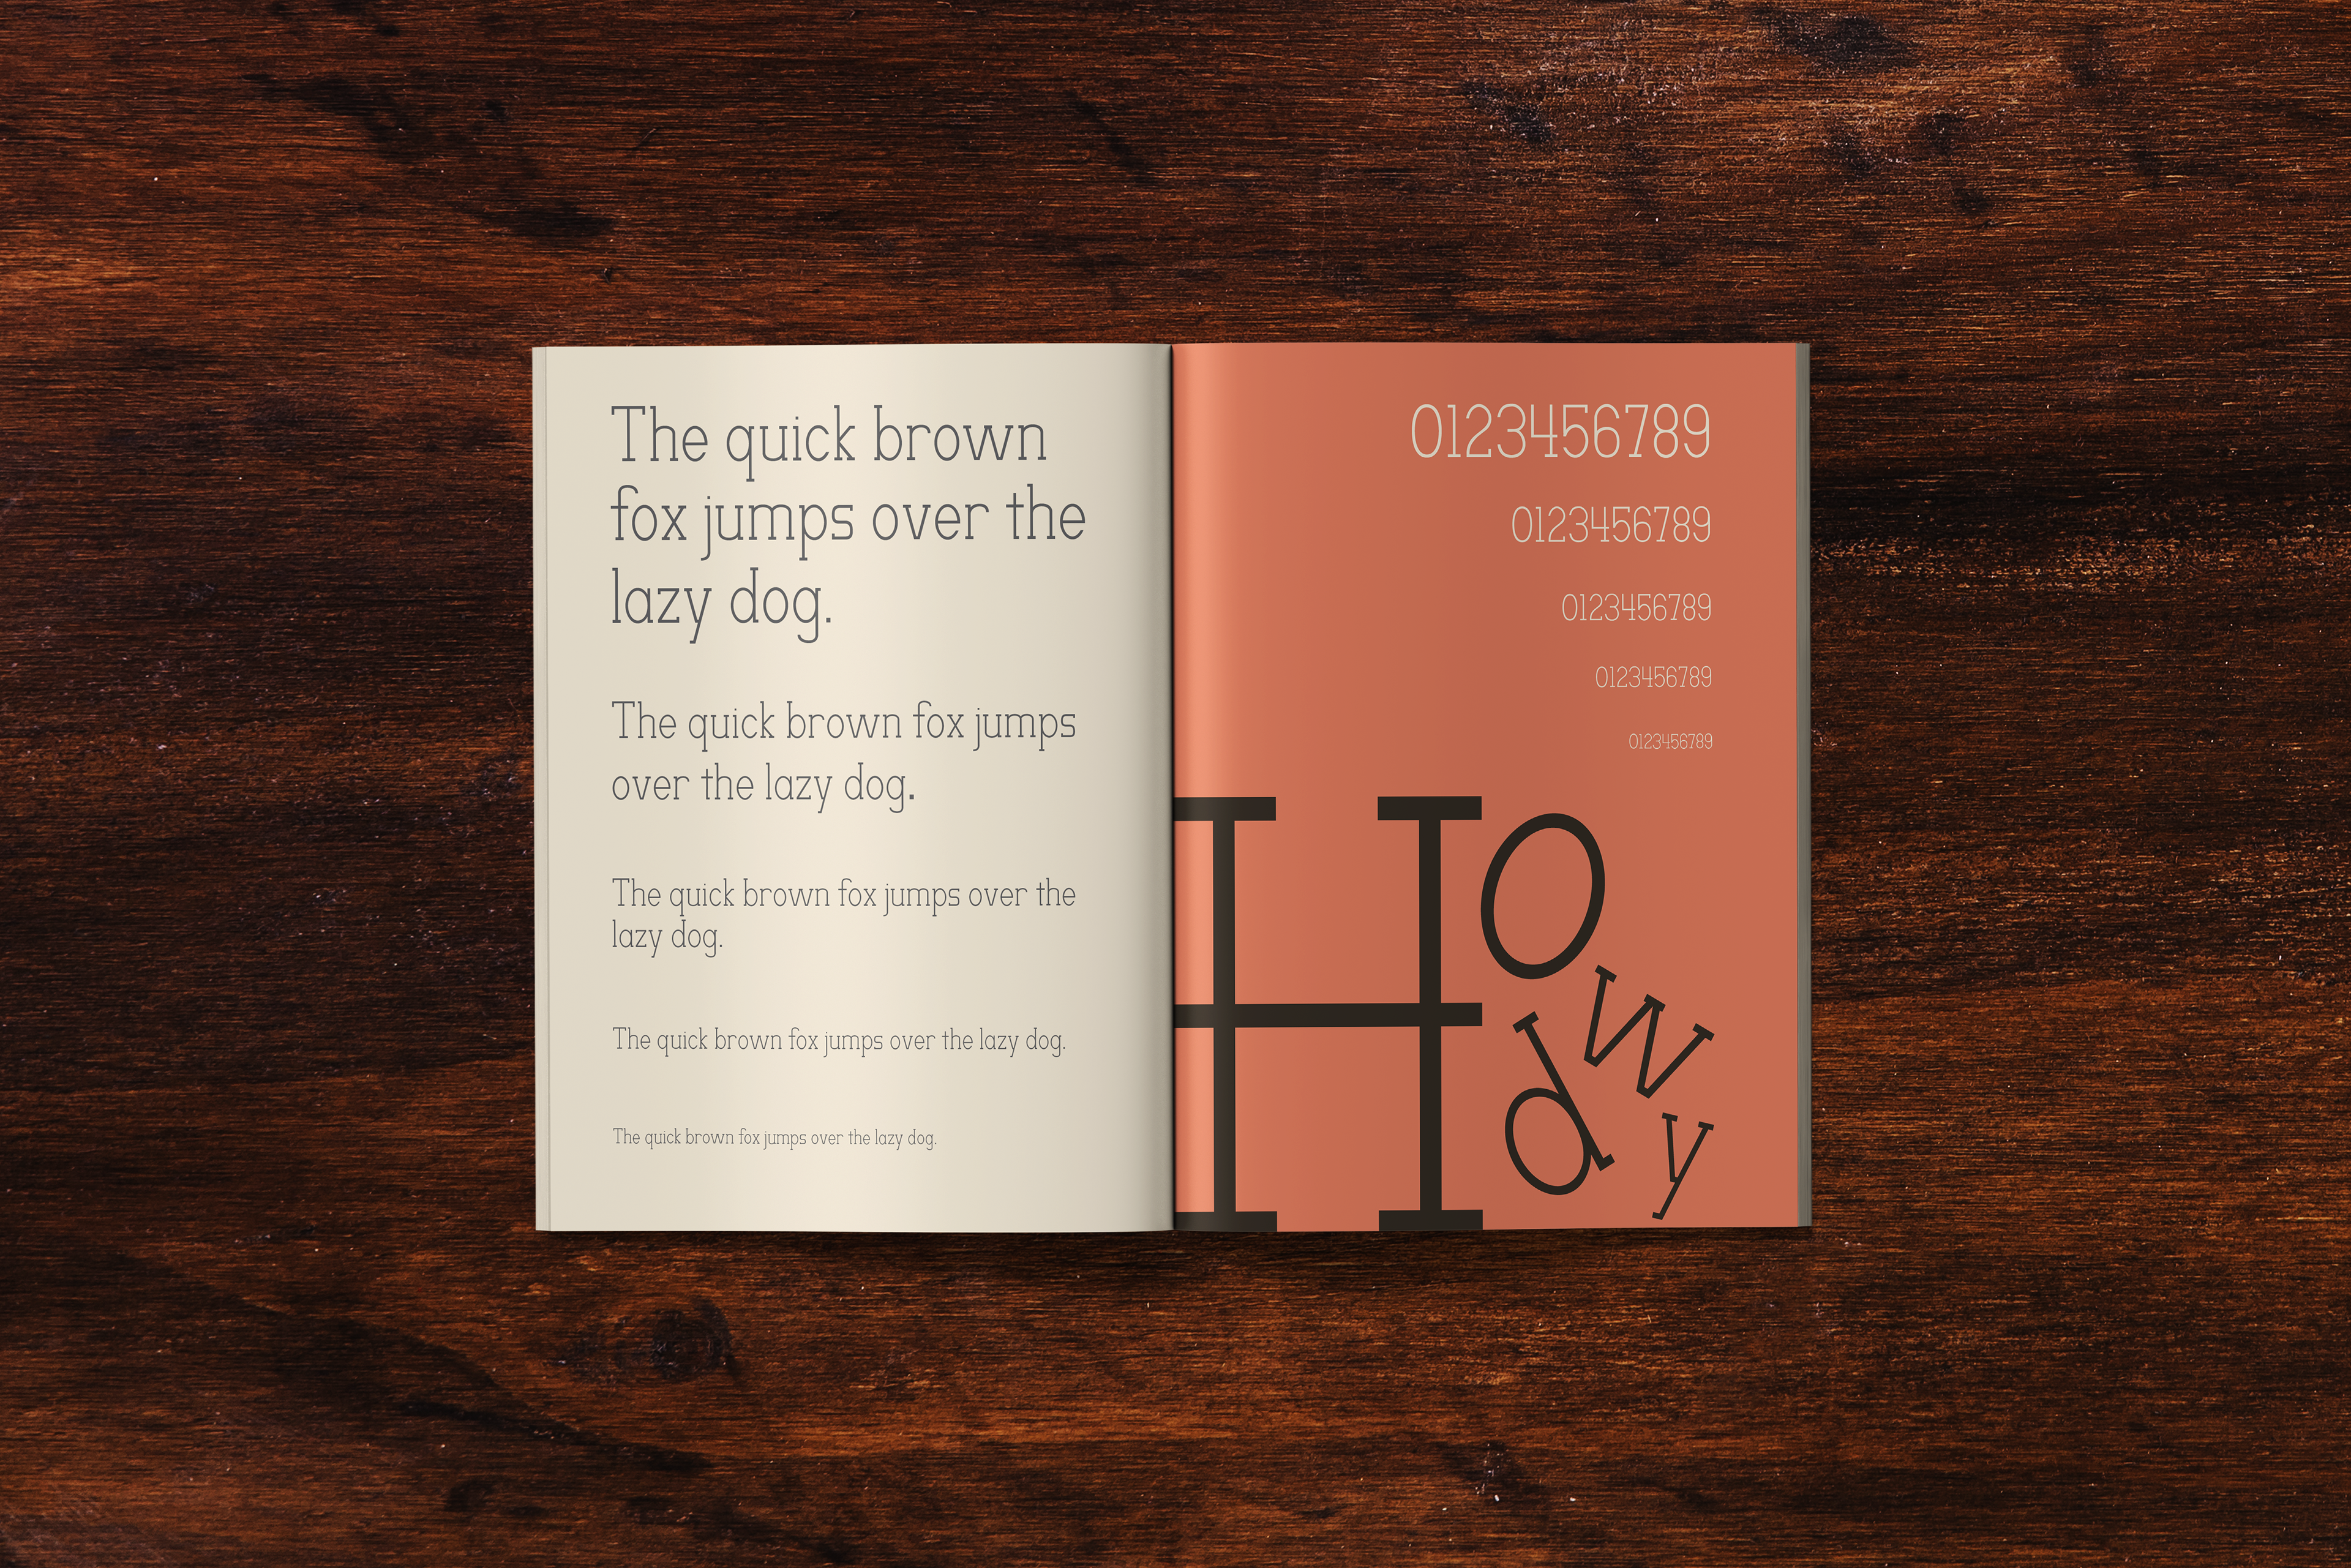 The quick brown
fox jumps over the
lazy dog.
The quick brown fox jumps
over the lazy dog.
The quick brown fox jumps over the
lazy dog.
The quick brown fox jumps over the lazy dog.
The quick brown fox jumps over the lazy dog.
0123456789
0123456789
0123456789
0123456789
0123456789
Howdy